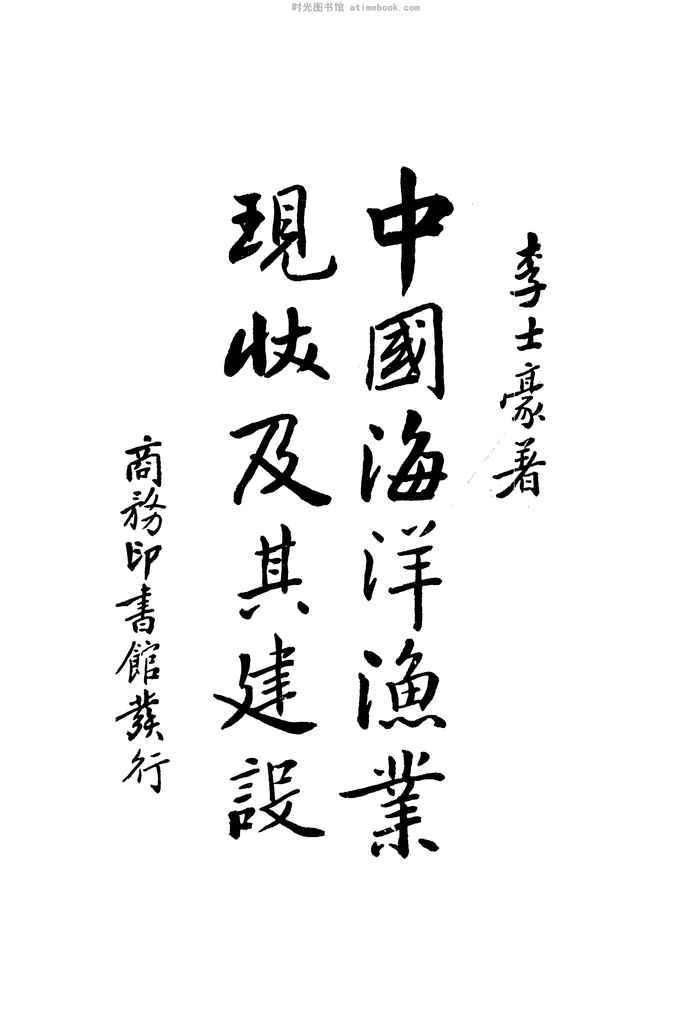 时光图书馆 atimebook.com
李士豪著
中國海洋漁業
現狀及其建設
商務印書館發行